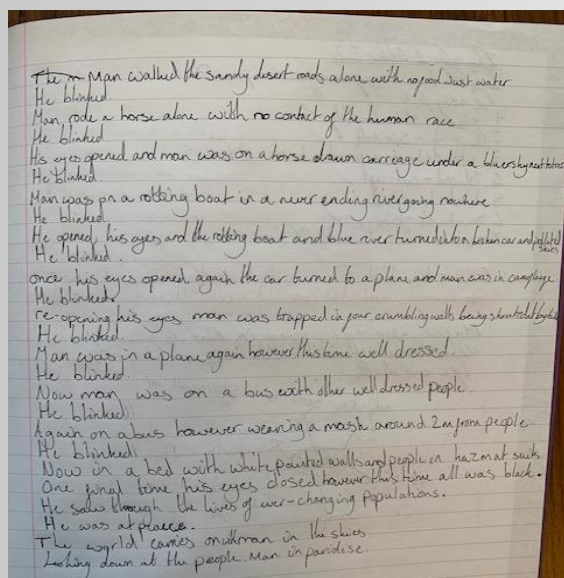 The Man walked the sandy desert roads alone with no food Just water
He blinked.
Man, rode a horse alone with no contact of the human race
He blinked
His eyes opened and man was on a horse drawn carriage under a blue sky next to
He blinked.
Man was on a robbing boat in a never ending river going nowhere
He blinked.
He opened his eyes and the robbing boat and blue river turned into a broken car and polluted
skies
He blinked.
once his eyes opened again the car turned to a plane and man was in
He blinked.
re-opening his eyes man was trapped in four crumbling walls being shouted at by
He blinked.
Man was in a plane again however this time well dressed.
He blinked.
Now man was on a bus with other well dressed people.
He blinked
Again on a bus however wearing a mask around 2m from people.
He blinked
Now in a bed with white painted walls and people in hazmat suits.
One final time his eyes closed however this time all was black.
He saw through the lives of ever-changing populations.
He was at peace.
The world carries on man in the skies
Looking down at the people. Man in paridise.